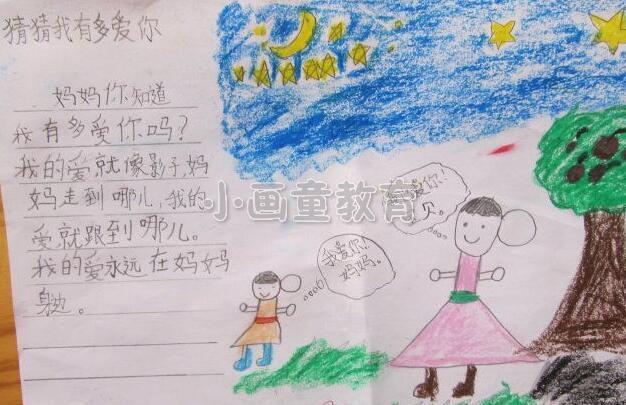 猜猜我有多爱你
妈妈你知道
我有多爱你吗？
我的爱就像影子,妈
妈走到哪儿,我的
爱就跟到哪儿。
我的爱永远在妈妈
身边。
小画童教育
爱你!
贝。
我爱你!
妈妈。